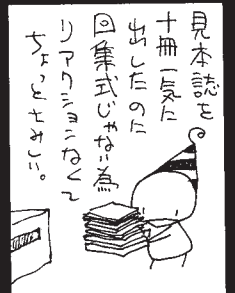 見本誌を
十冊一気に
出したのに
回集式じゃない為
リアクションなくて
ちょっとさみしい。